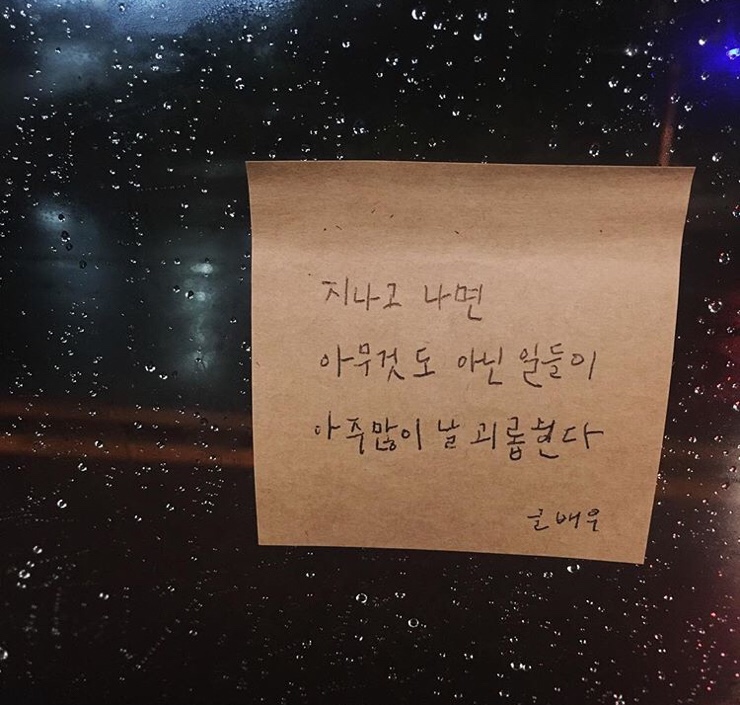 지나고 나면
아무것도 아닌 일들이
아주많이 날 괴롭힌다
글배우